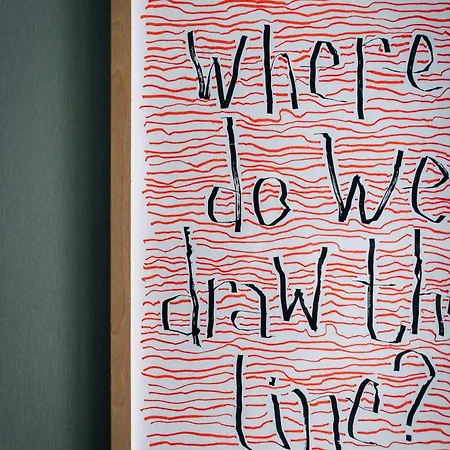 Where
do We
draw th
line?